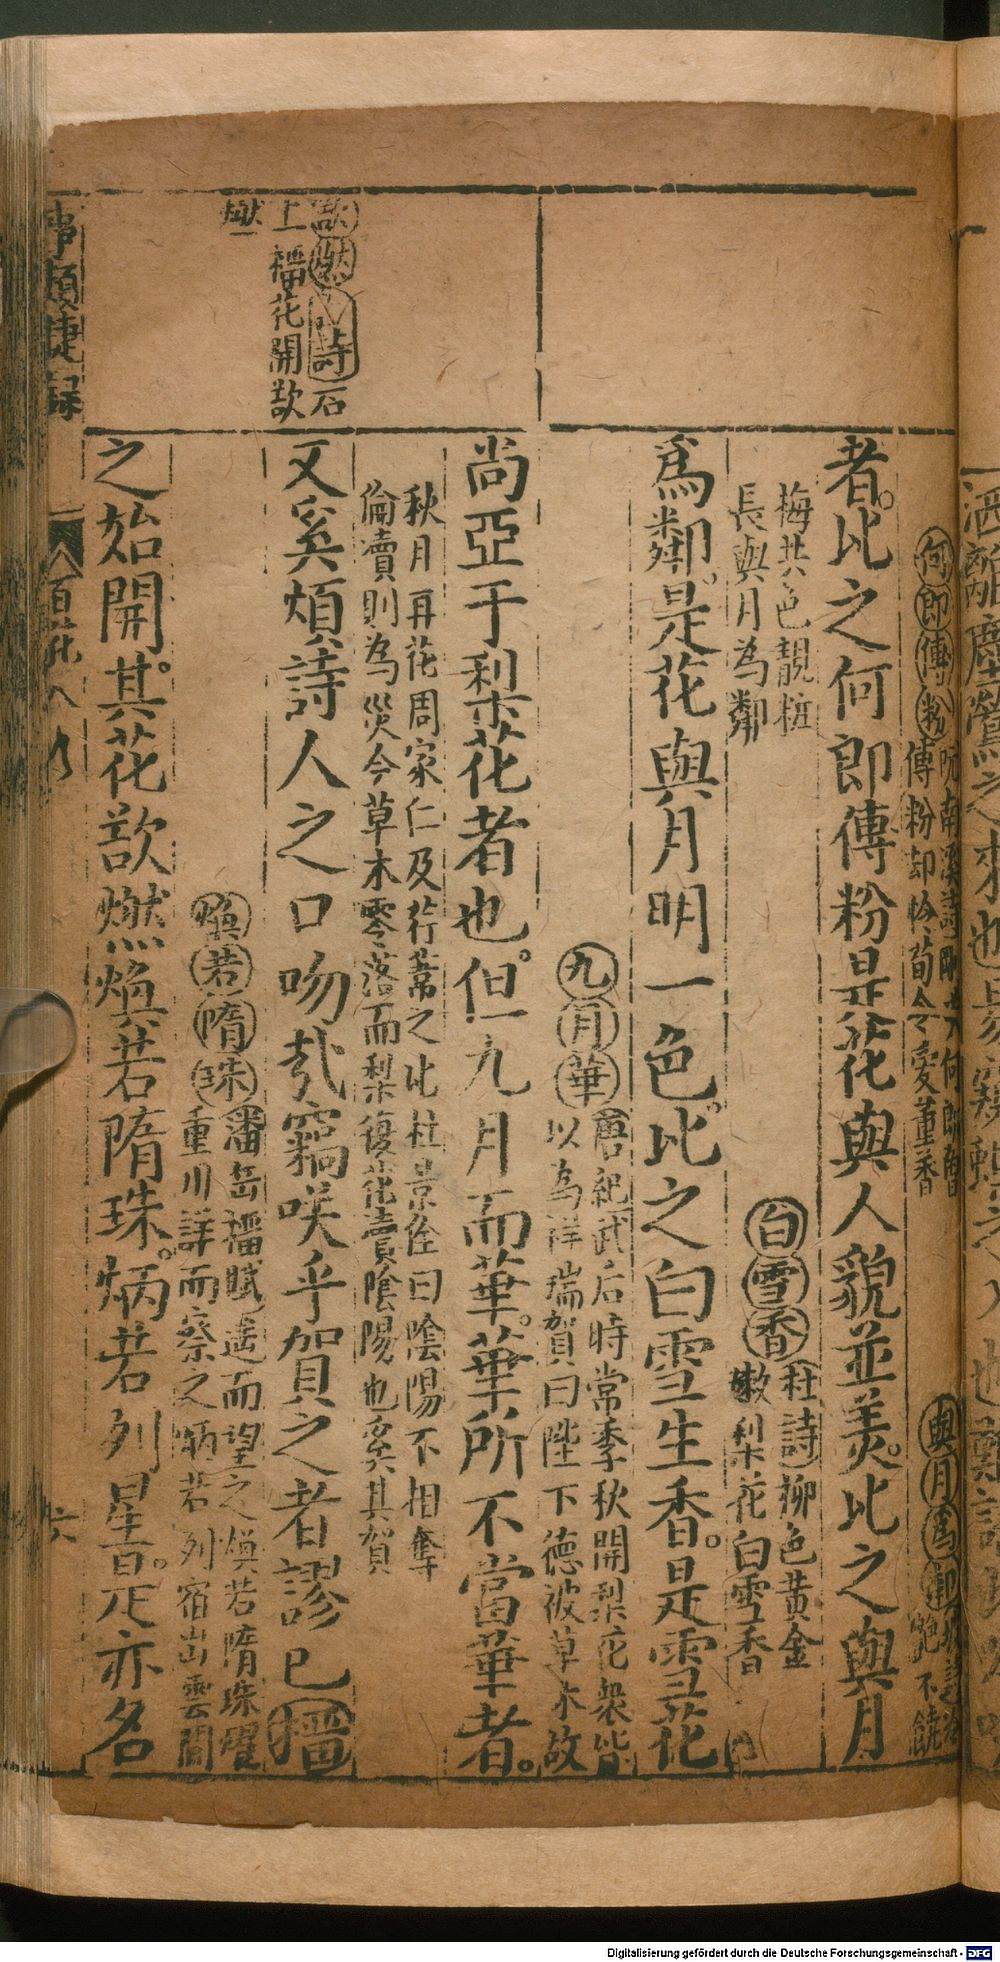 何郎傅粉
者。比之何郎傅粉是花與人貌並美。比之與月
與月為鄰
梅共色靚粧
長與月為鄰
白雪香
杜詩柳色黃金
嫩梨花白雪香
爲鄰。是花與月明一色。比之白雪生香。是雪花
九月華
唐紀武后時常季秋開梨花衆皆
以為祥瑞賀曰陛下德被草木故
尚亞于梨花者也。但九月而華。華所不當華者。
秋月再花周家仁及行葦之比杜景佺曰陰陽不相奪
倫瀆則為災今草木零落而梨復花瀆陰陽也奚其賀
又奚煩詩人之口吻哉竊咲乎賀之者謬已榴
歆燃詩石
上榴花開歆
燃
煥若隋珠
潘岳榴賦遥而望之煥若隋珠耀
重川詳而察之炳若列宿出雲間
之始開。其花歆燃煥若隋珠。炳若列星。是亦名
事類捷錄
百花
六
Digitalisierung gefördert durch die Deutsche Forschungsgemeinschaft - DFG